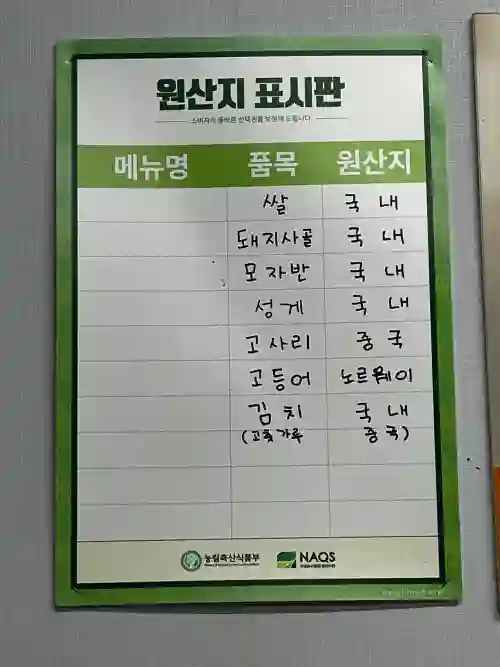 원산지 표시판
소비자의 올바른 선택권을 보장해 드립니다
메뉴명 품목 원산지
쌀 국내
돼지사골 국내
모자반 국내
성게 국내
고사리 중국
고등어 노르웨이
김치 국내
(고춧가루 중국)
농림축산식품부
NAQS